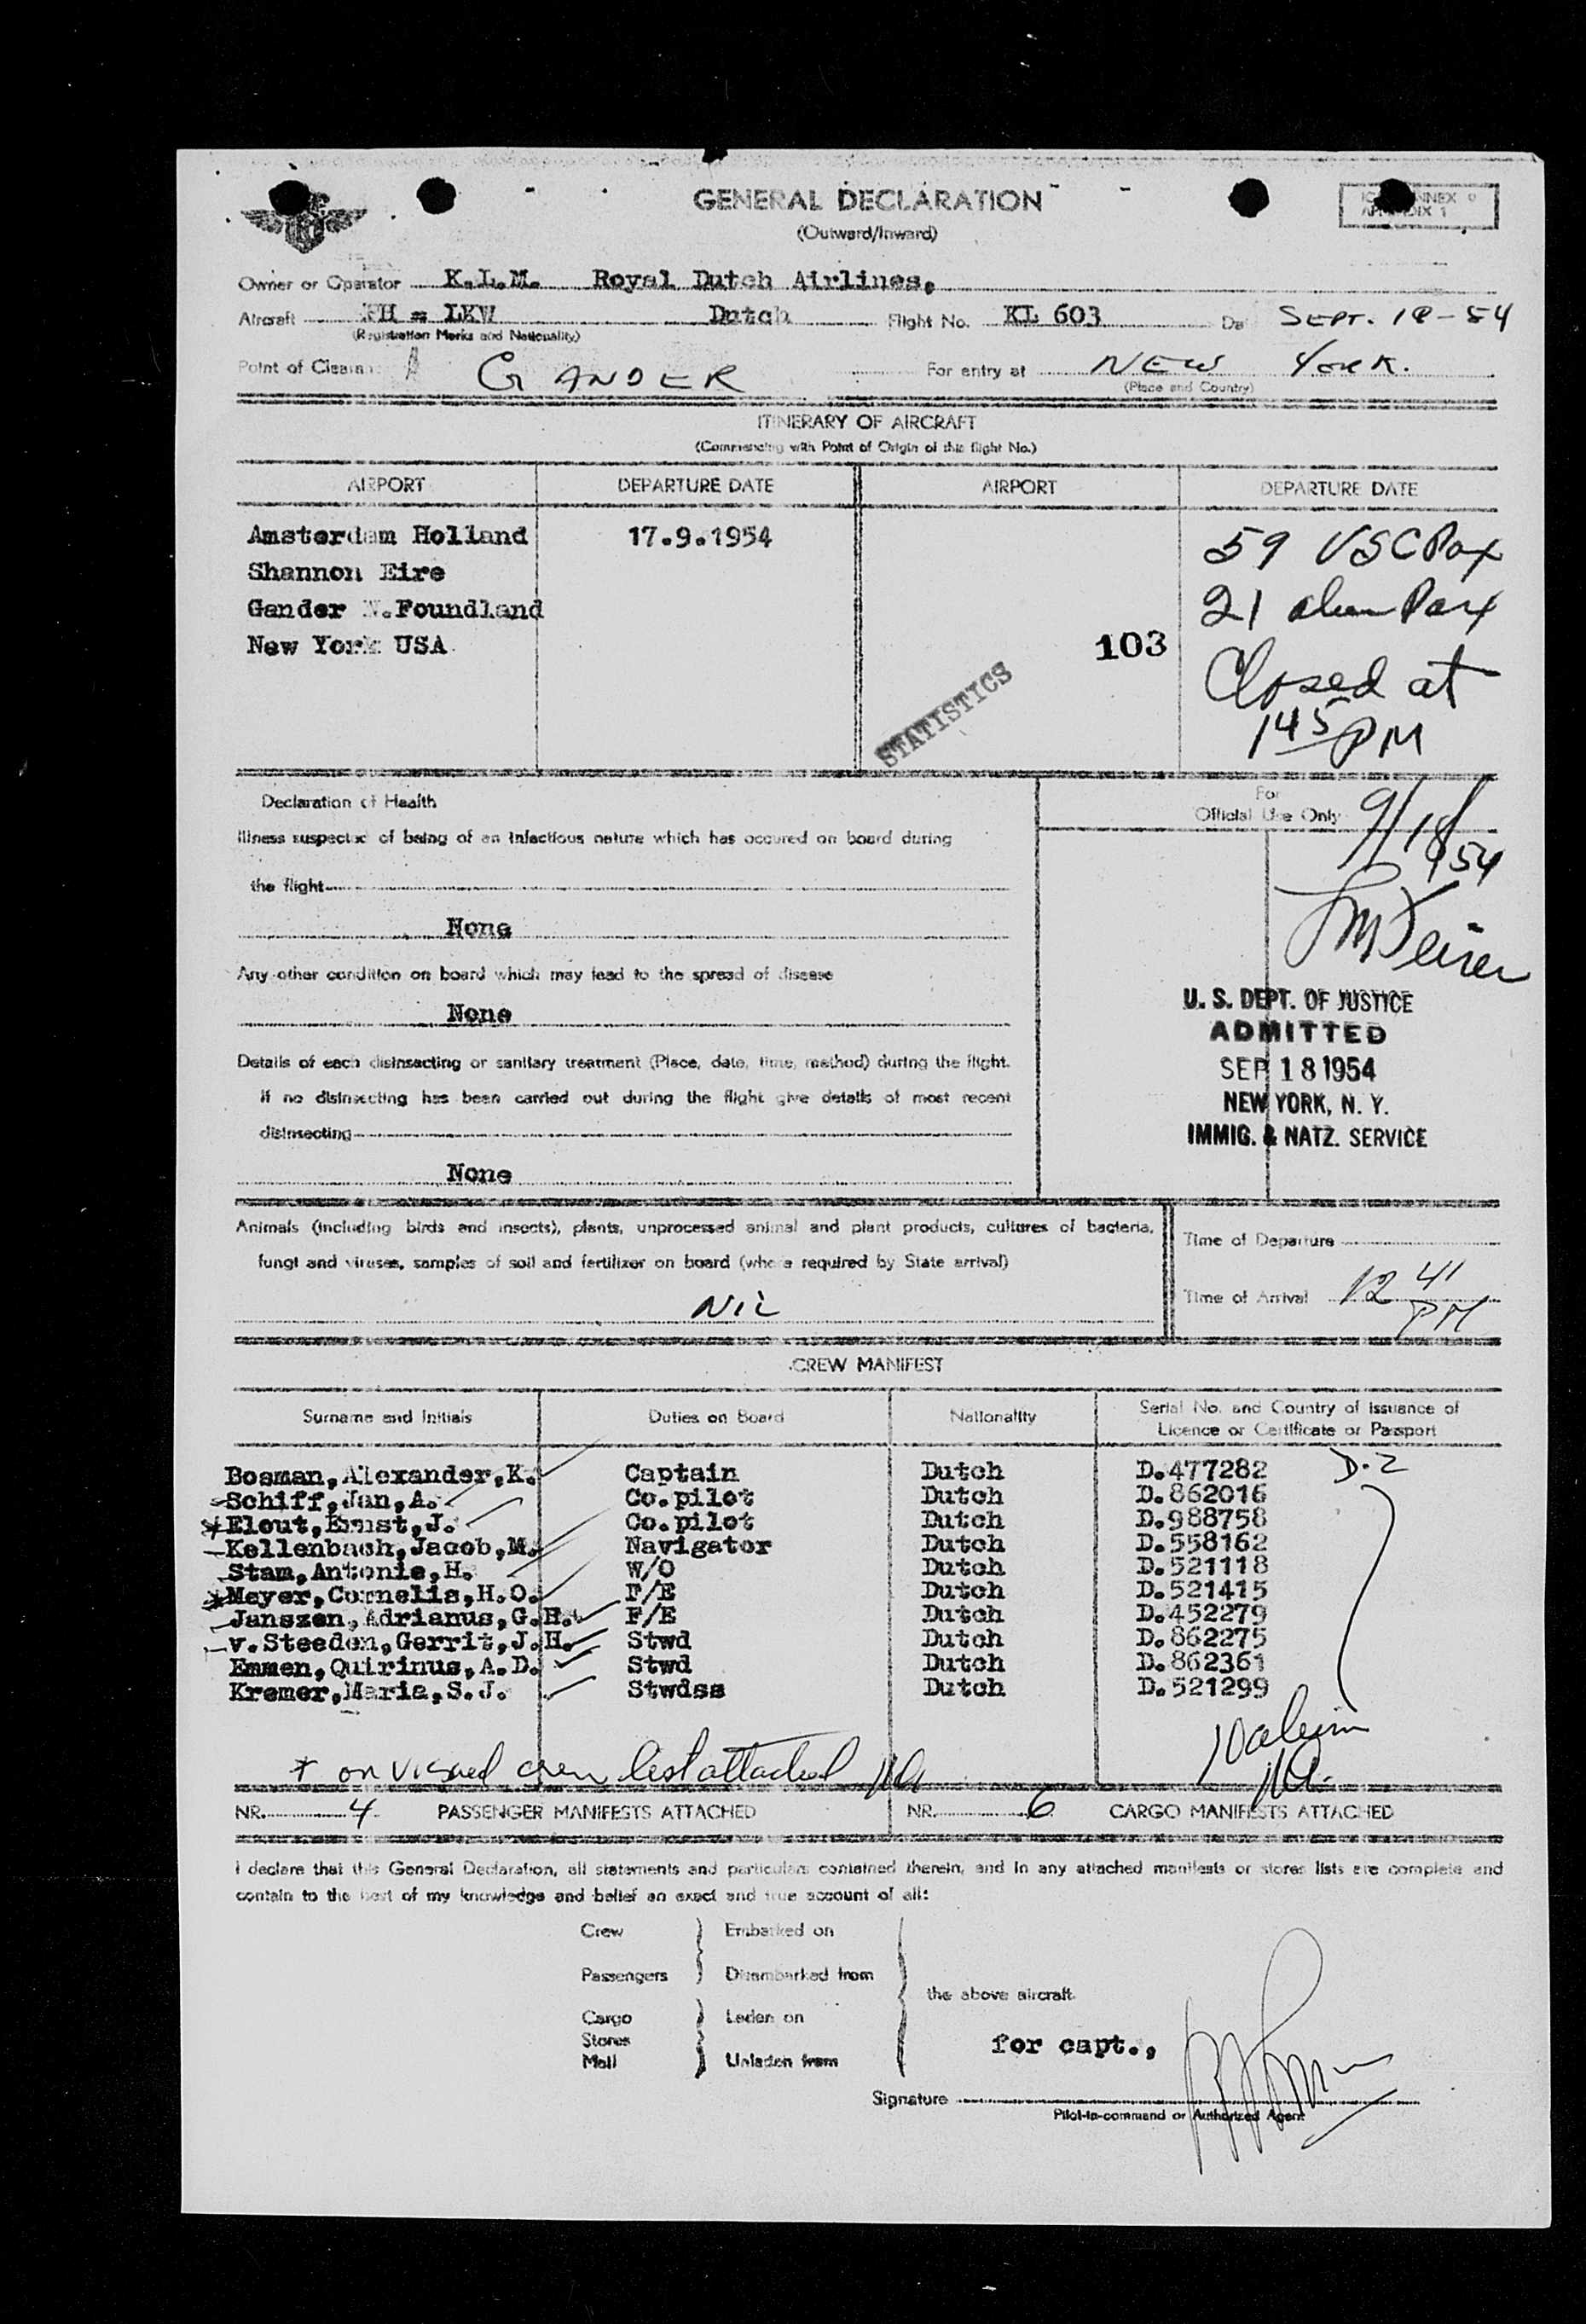 GENERAL DECLARATION
(Outward/Inward)
ANNEX 9
Owner or Operator K.L.M. Royal Dutch Airlines.
Aircraft PH = LKW Dutch Flight No. KL 603 SEPT. 18-54
(Registration Marks and Nationality)
Point of GANDER For entry at NEW YORK.
(Place and Country)
ITINERARY OF AIRCRAFT
(Commencing with Point of Origin of this flight No.)
AIRPORT DEPARTURE DATE AIRPORT DEPARTURE DATE
Amsterdam Holland 17.9.1954
Shannon Eire
Gander N.Foundland
New York USA
103
STATISTICS
59 USC Pax
21 alien Pax
Closed at
145 PM
Declaration of Health
Illness suspected of being of an infectious nature which has occured on board during
the flight
None
Any other condition on board which may lead to the spread of disease
None
Details of each disinsecting or sanitary treatment (Place, date, time, method) during the flight.
If no disinsecting has been carried out during the flight give details of most recent
disinsecting
None
For
Official Use Only
9/18/54
U. S. DEPT. OF JUSTICE
ADMITTED
SEP 18 1954
NEW YORK, N. Y.
IMMIG. & NATZ. SERVICE
Animals (including birds and insects), plants, unprocessed animal and plant products, cultures of bacteria,
fungi and viruses, samples of soil and fertilizer on board (where required by State arrival)
NIL
Time of Departure
Time of Arrival 12 41 PM
CREW MANIFEST
Surname and Initials Duties on Board Nationality Serial No. and Country of issuance of
Licence or Certificate or Passport
Bosman, Alexander, K. Captain Dutch D.477282 D.2
Schiff, Jan, A. Co.pilot Dutch D.862016
*Elout, Ernst, J. Co.pilot Dutch D.988758
Kellenbach, Jacob, M. Navigator Dutch D.558162
Stam, Antonie, H. W/O Dutch D.521118
*Meyer, Cornelis, H.O. F/E Dutch D.521415
Janszen, Adrianus, G.H. F/E Dutch D.452279
v.Steeden, Gerrit, J.H. Stwd Dutch D.862275
Emmen, Quirinus, A.D. Stwd Dutch D.862361
Kremer, Maria, S.J. Stwdss Dutch D.521299
10 alien
* on visaed crew list attached
NR. 4 PASSENGER MANIFESTS ATTACHED NR. 6 CARGO MANIFESTS ATTACHED
I declare that this General Declaration, all statements and particulars contained therein, and in any attached manifests or stores lists are complete and
contain to the best of my knowledge and belief an exact and true account of all:
Crew Embarked on
Passengers Disembarked from
the above aircraft.
Cargo Laden on
Stores
Mail Unladen from
for capt.,
Signature
Pilot-in-command or Authorized Agent